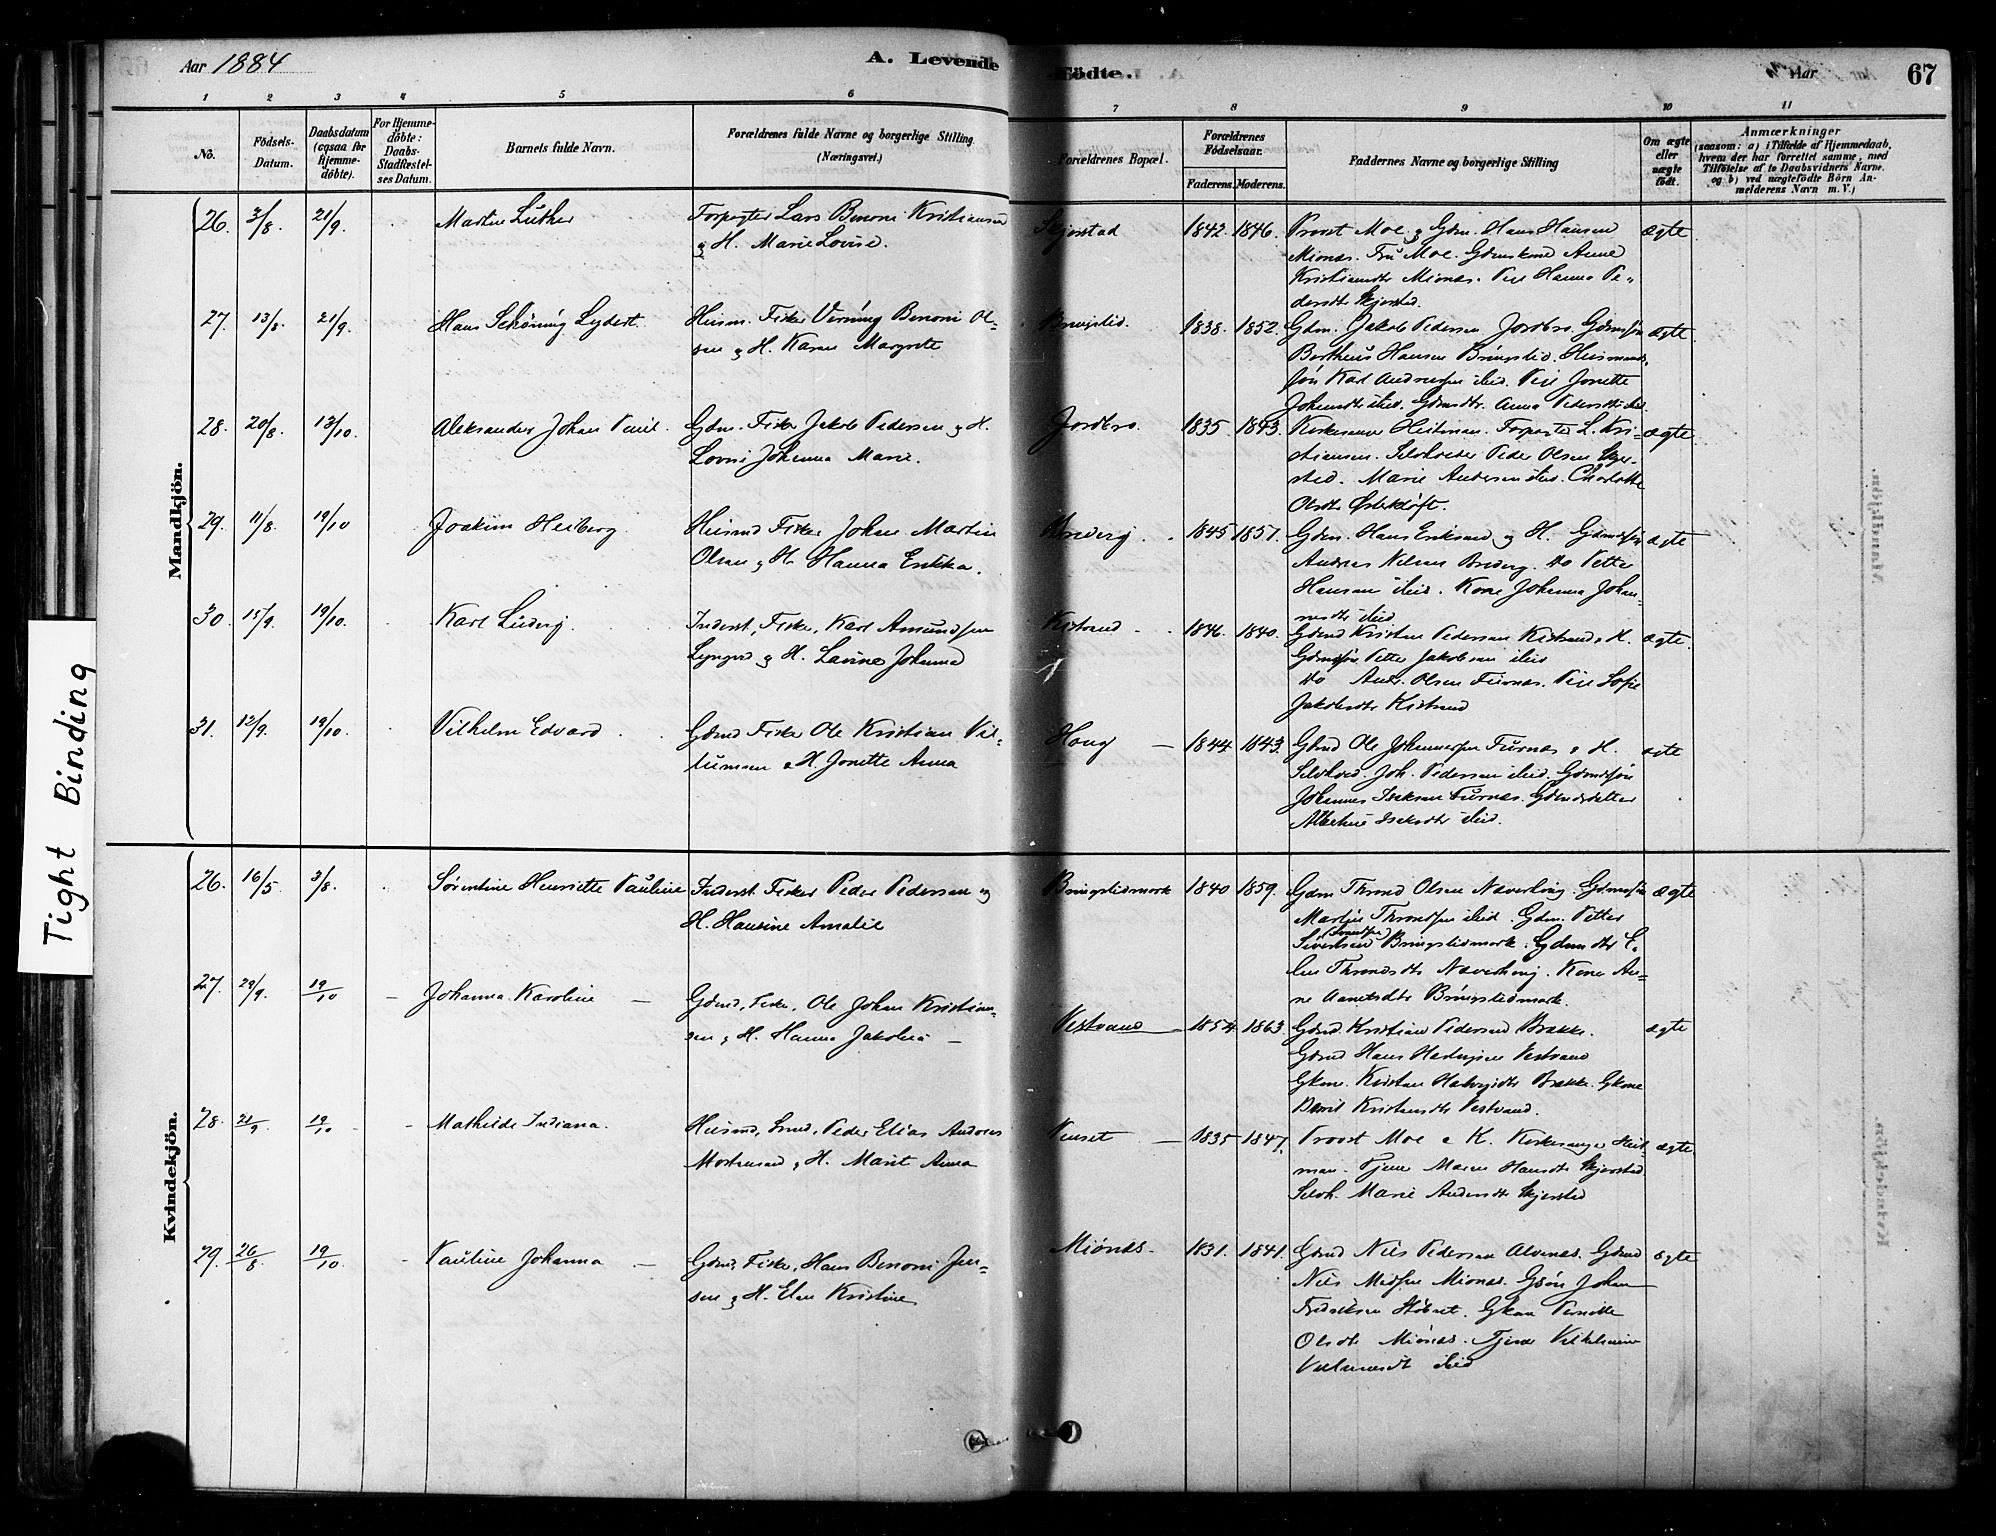 Aar 1884
A. Levende Födte.
Aar
67
1 2 3 4 5 6 7 8 9 10 11
No.
Födsels-
Datum.
Daabsdatum
(ogsaa for
Hjemme-
döbte).
For Hjemme-
döbte:
Daabs-
Stadfæstel-
ses Datum.
Barnets fulde Navn.
Forældrenes fulde Navne og borgerlige Stilling
(Næringsvei.)
Forældrenes Bopæl.
Forældrenes
Födselsaar.
Faderens. Moderens.
Faddernes Navne og borgerlige Stilling
Om ægte
eller
uægte
födt.
Anmærkninger
(saasom: a) i Tilfælde af Hjemmedaab,
hvem der har forrettet samme, med
Tilföielse af to Daabsvidners Navne.
og b) ved uægtefödte Börn An-
melderens Navn m. V.)
Mandkjön.
26. 3/8. 21/9. Martin Luther Forpagter Lars Benoni Kristiansen
& H. Marie Lovise.
Skjerstad 1842. 1846. Provst Moe & Gdm. Hans Hansen
Mionæs. Fru Moe. Gdmskone Anne
Kristiansdtr Mionæs. Pige Hanna Pe-
dersdtr Skjersted.
ægte
27. 13/8. 21/9. Hans Schöning Lydert. Husm. Fisker Benoni Ol-
sen & H. Karen Margrete
Bringslid. 1838. 1852. Gdm. Jakob Pedersen Jordbro. Gdmssøn
Bertheus Hansen Bringslid. Husmands-
søn Karl Andreassen ibid. Pige Jonette
Johansdtr ibid. Gdmsdtr. Anna Pedersdtr ibid.
ægte
28. 20/8. 13/10. Aleksander Johan Paul. Gdm. Fisker Jakob Pedersen & H.
Lovise Johanna Marie.
Jordbro. 1835. 1843. Kirkesanger Heitman. Forpagter L. Kri-
stiansen. Selvhveder Peder Olsen Skjer-
sted. Marie Andersen ibid. Charlotte
Olsdtr Østerkløft.
ægte
29. 11/8. 19/10 Joakim Heiberg Husmd Fisker Johan Martin
Olsen & H. Hanna Erikka.
Bredvig. 1845 1857. Gdm. Hans Eriksen & H. Gdmssøn
Andreas Nilsen Bredvig. do Petter
Hansen ibid. Kone Johanna Johan-
nesdtr ibid.
ægte
30. 15/9. 19/10. Karl Ludvig Inderst, Fisker, Karl Amundsen
& H. Lavine Johanna
Kistrand 1846. 1840. Gdmd Kristen Pedersen Kistrand & H.
Gdmssøn Petter Jakobsen ibid
do Andr. Olsen Furnæs. Pige Sofie
Jakobsdtr Kistrand
ægte.
31. 12/9. 19/10. Vilhelm Edvard Gdmd Fisker Ole Kristian Vil-
lumsen & H. Jonette Anna
Haug 1844. 1843. Gdmd Ole Johannessen Furnæs & H.
Selvhved. Joh. Pedersen ibid. Gdmdsøn
Johannes Isaksen Furnæs. Gdmdsdatter
Albertine Isaksdtr ibid.
ægte
Kvindekjön.
26. 16/5. 3/8. Sørentine Henriette Pauline Inderst. Fisker Peder Pedersen og
H. Hansine Amalie
Bringslidmark 1840 1859. Gdm Thrond Olsen Næverhaug. Gdmssøn
Martin Throndsen ibid. Gdm. Petter
Sivertsen Bringslidmark. Gdmsdtr E-
len Throndsdtr Næverhaug. Kone An-
ne Bringslidmark.
ægte
27. 29/9. 19/10 Johanna Karoline Gdmd, Fisker, Ole Johan Kristian-
sen & H. Hanna Jakobea
Vestvand 1854 1863. Gdmd Kristian Pedersen Brække.
Gdmd Hans Hartvigsen Vestvand
Gkone. Kristine Brække. Gkone
Berit Kristensdtr Vestvand.
ægte
28. 21/9. 19/10 Mathilde Indiana. Husmd, Smed, Peder Elias Andreas
Mortensen & H. Marit Anna
Venset 1835 1847. Provst Moe & K. Kirkesanger Heit-
man. Tjener Maren Hansdtr Skjersted
Selvh. Marie Andersdtr Skjersted
ægte
29. 26/8 19/10 Pauline Johanna Gdmd, Fisker, Hans Benoni Jen-
sen & H. Elen Kristine
Miönæs. 1831. 1841. Gdmd Nils Pedersen Alvenæs. Gdmd
Nils Miönæs. Gsøn Johan
Fredriksen Støvset. Gkone Pernille
Olsdtr Miönæs. Tjener Vilhelmine
ibid
ægte
Tight Binding